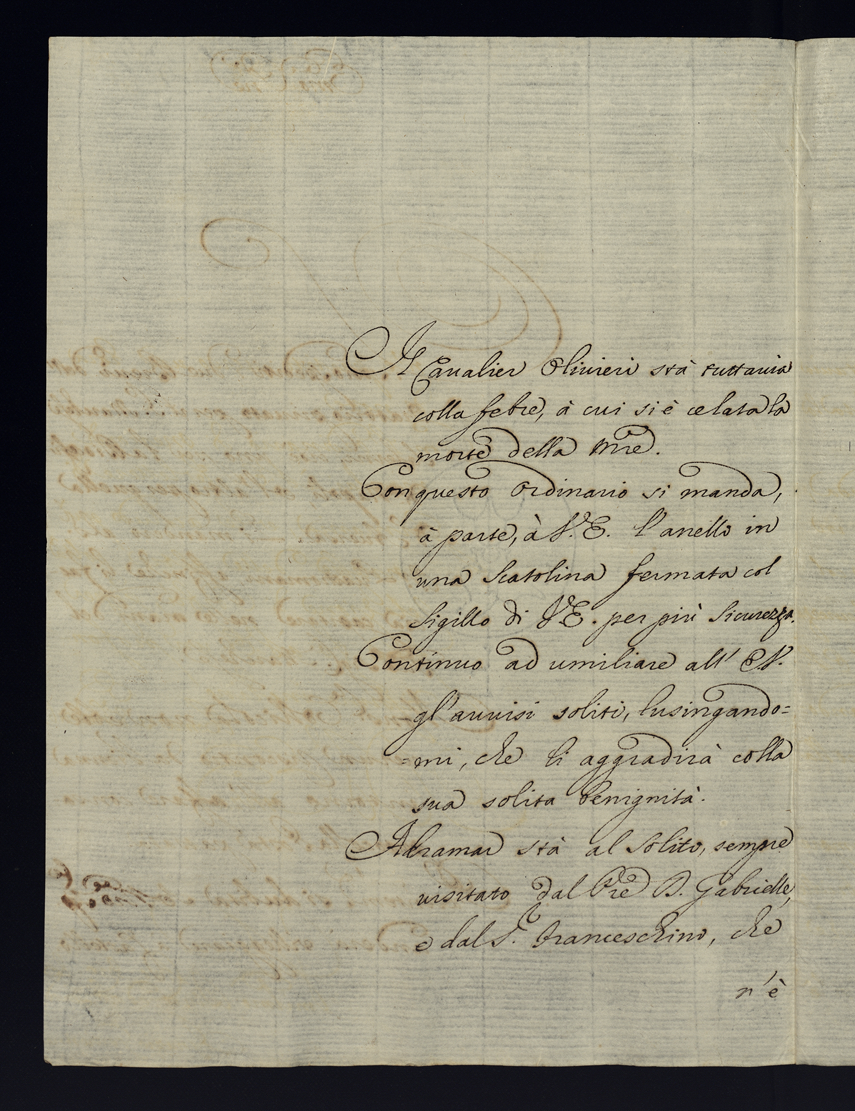 Il Cavalier Olivieri stà tuttavia
colla febre, à cui si è celata la
morte della Mre.
Con questo Ordinario si manda,
à parte, à V. E. l'anello in
una Scatolina fermata col
Sigillo di V. E. per più Sicurezza.
Continuo ad umiliare all' E. V.
gl'avvisi soliti, lusingando=
=mi, che li aggradirà colla
sua solita benignità.
Alramar stà al Solito, sempre
visitato dal Pre D. Gabrielle,
e dal S. Franceschino, che
n'è